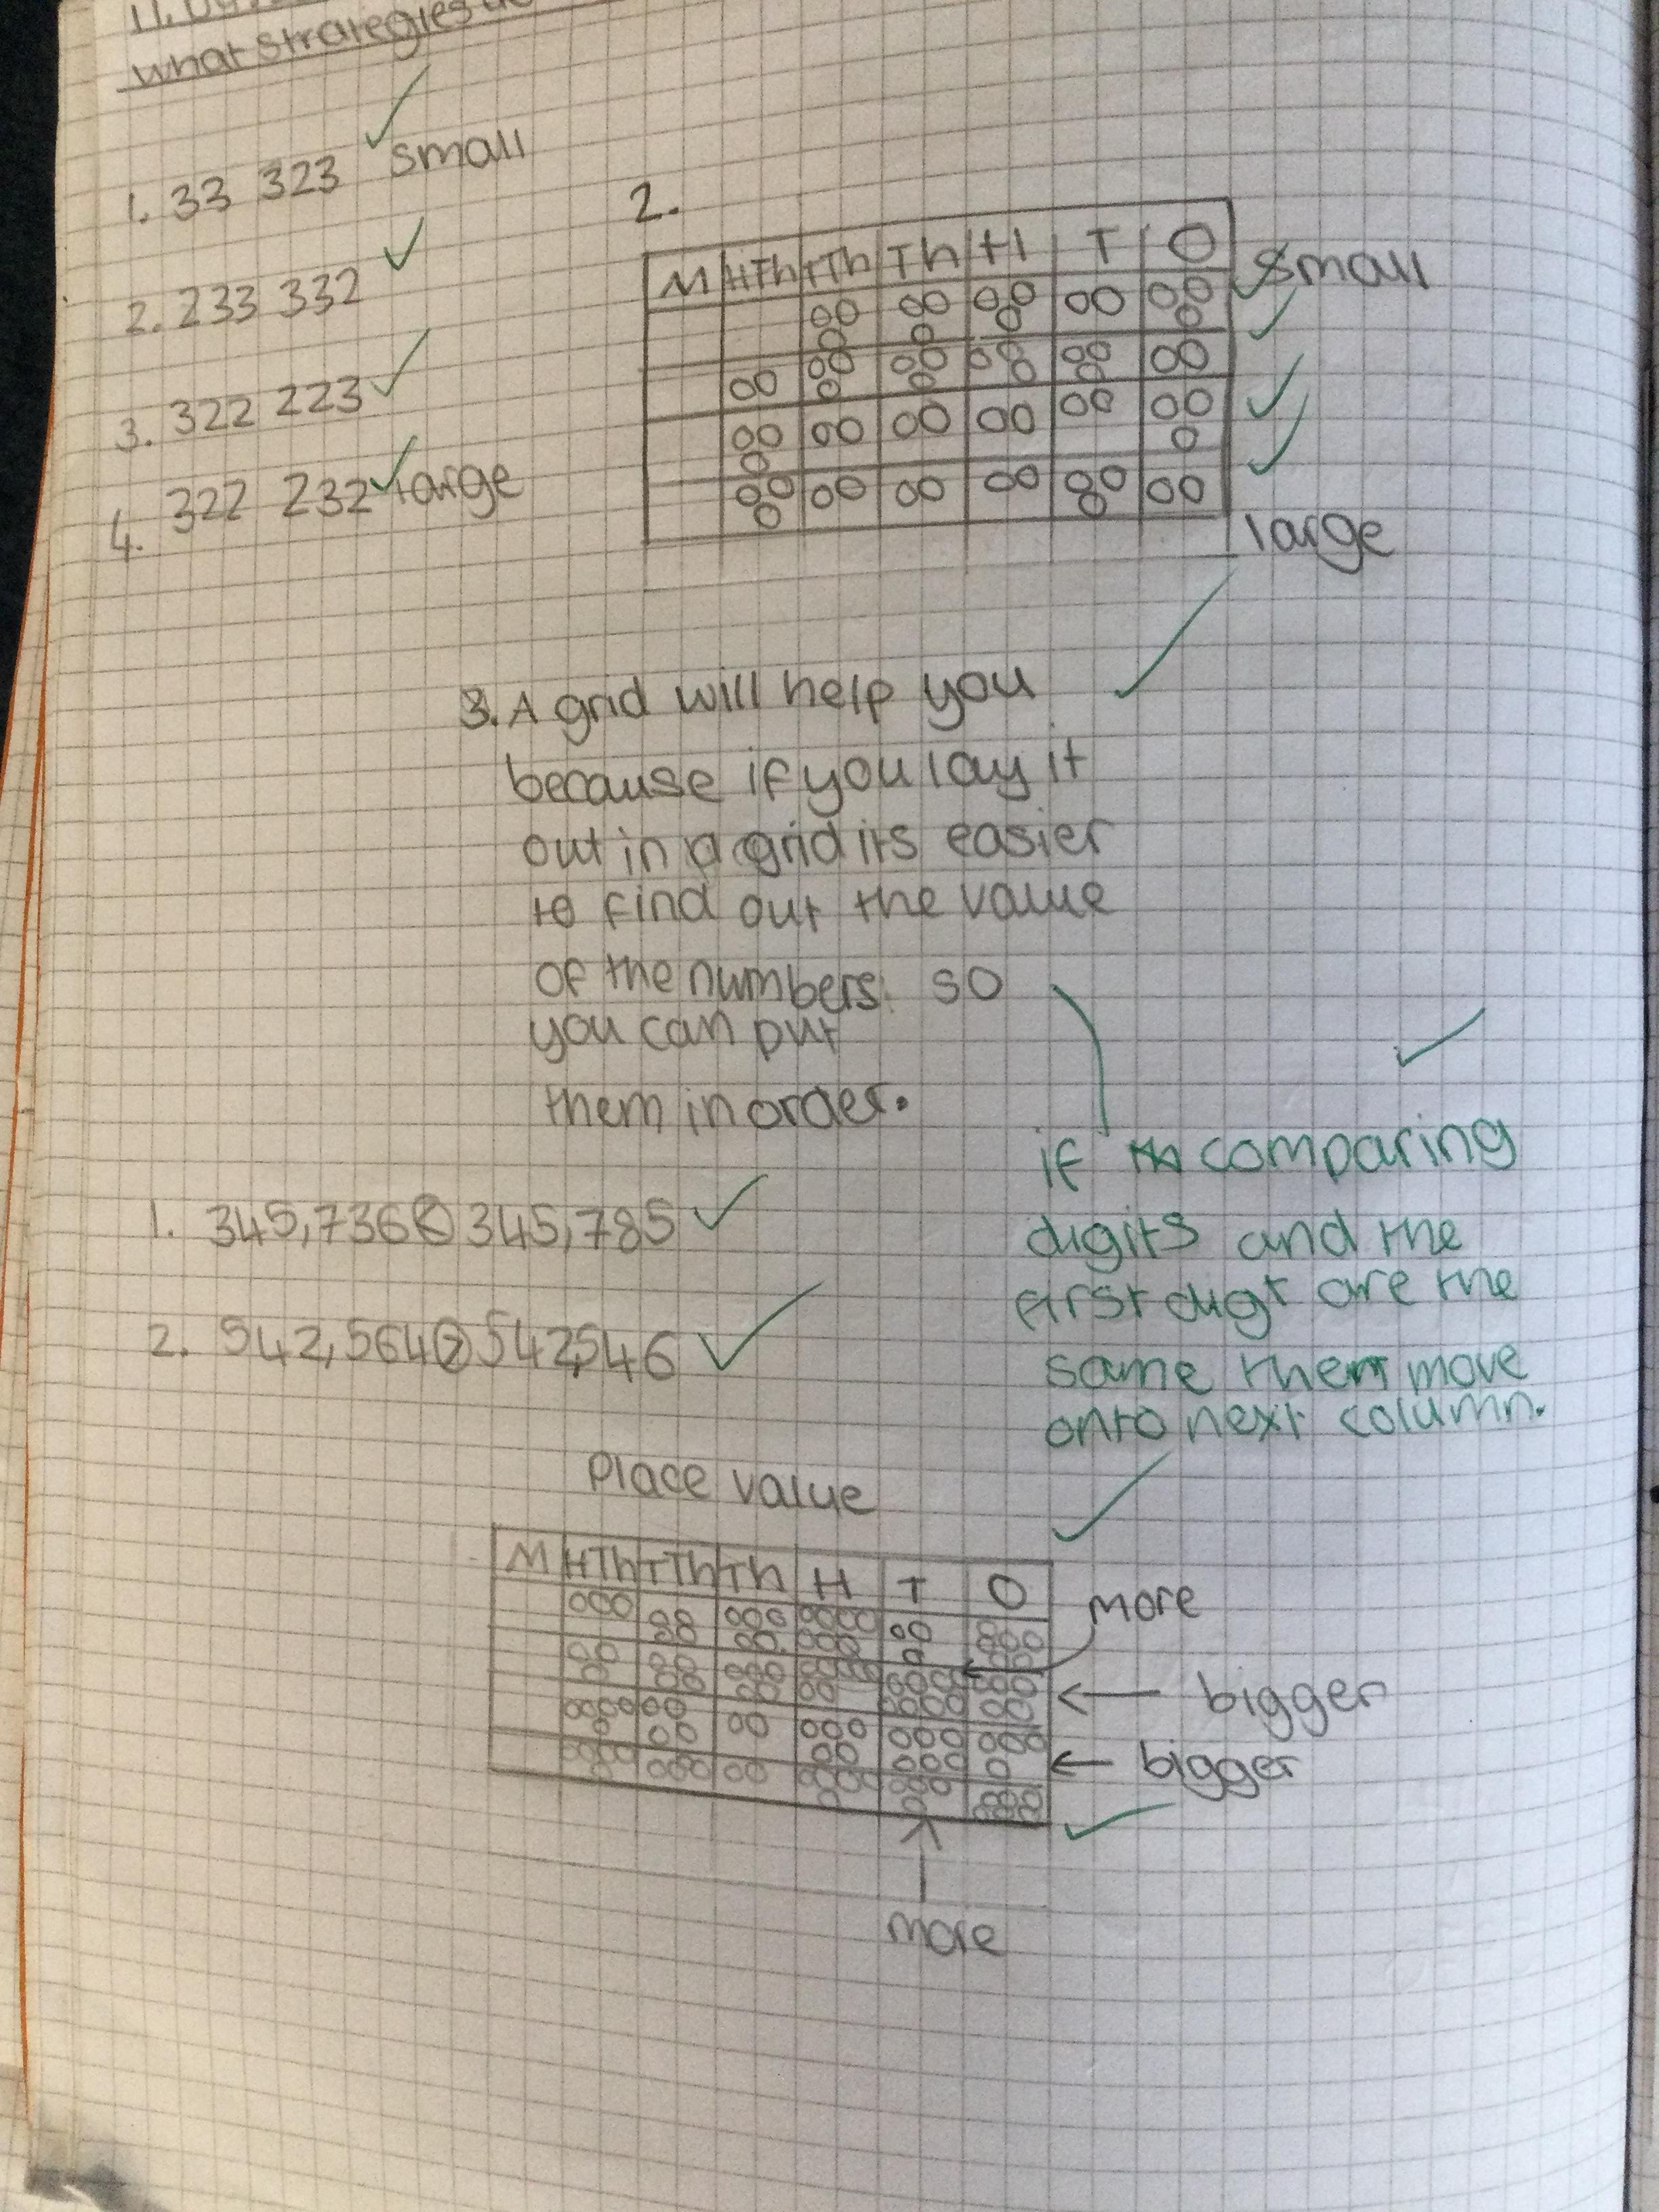 what strategies
1. 33 323 small
2. 233 332
3. 322 223
4. 322 232 large
2.
M HTh TTh Th H T O
small
large
3. A grid will help you
because if you lay it
out in a grid its easier
to find out the value
of the numbers. so
you can put
them in order.
if comparing
digits and the
first digt are the
same then move
onto next column.
1. 345,736 < 345,785
2. 542,564 > 542,546
Place value
M HTh TTh Th H T O
more
bigger
bigger
more